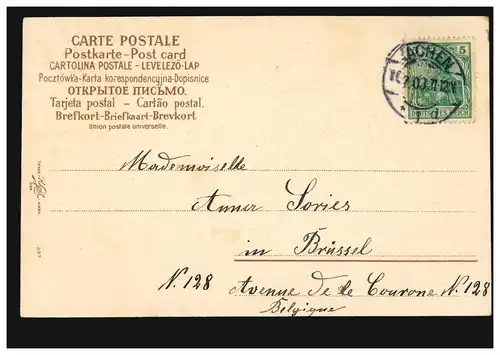 CARTE POSTALE
Postkarte-Post card
CARTOLINA POSTALE - LEVELEZÖ-LAP
Pocztówka-Karta korespondencyjna-Dopisnice
ОТКРЫТОЕ ПИСЬМО.
Tarjeta postal - Cartão postal.
Brefkort-Briefkaart-Brevkort
Union postale universelle.
AACHEN
5
DEUTSCHES REICH
Mademoiselle
Anna Sories
in Brüssel
N. 128 Avenue de la Couronne N. 128
Belgique